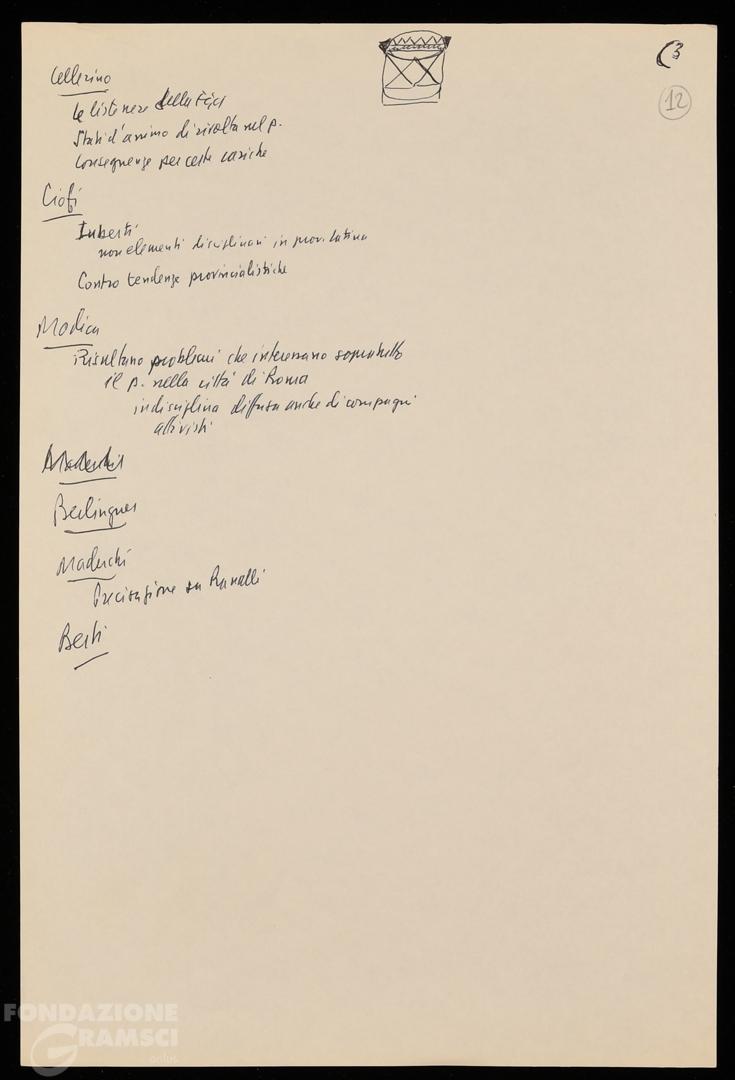 (3
12
Cellerino
Le liste nere della FGCI
Stati d'animo di rivolta nel p.
Conseguenze per certe cariche
Ciofi
Imberti
non elementi disciplinari in prov. Latina
Contro tendenze provincialistiche
Modica
Risultano problemi che interessano soprattutto
il p. nella città di Roma
indisciplina diffusa anche di compagni
attivisti
Berlinguer
Maderchi
Precisazione su Ranalli
Berti
FONDAZIONE
GRAMSCI
onlus